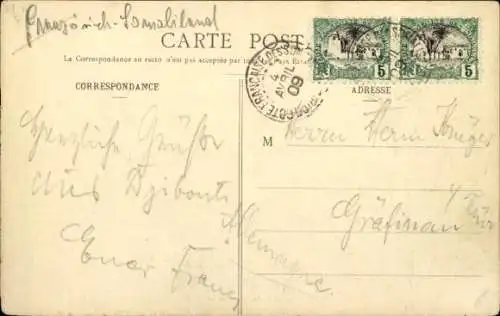 Französisch-Somaliland
CARTE POSTALE
La Correspondance au recto n'est pas acceptée par
CORRESPONDANCE
ADRESSE
COTE FRANÇAISE DES SOMALIS
4 AVRIL 09
5 5
Herzliche Grüße
aus Djibouti
Euer Franz
M
Herrn Herm. Krüger
Gräfinau
Allemagne